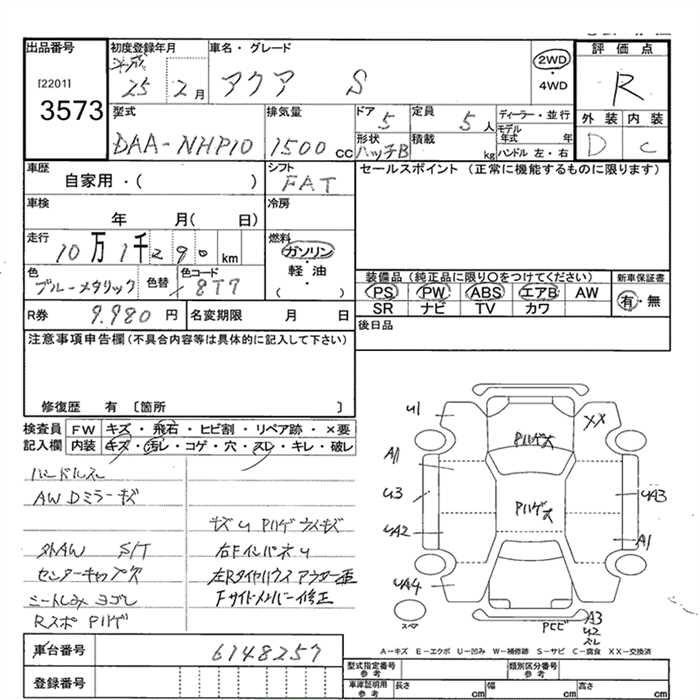 出品番号
[2201]
3573
初度登録年月
平成
25 2月
車名・グレード
アクア S
2WD
・
4WD
評価点
R
外装 内装
D C
型式
DAA-NHP10
排気量
1500 cc
ドア
5
定員
5人
形状
ハッチB
積載
kg
ディーラー・並行
モデル年式 年
ハンドル 左・右
車歴
自家用・( )
シフト
FAT
車検
年 月( 日)
冷房
走行
10万1千290km
燃料
ガソリン
・
軽・油
( )
色
ブルーメタリック
色替
カラーコード
8T7
R券
9.980円
名変期限 月 日
セールスポイント (正常に機能するものに限ります)
装備品 (純正品に限り○をつけてください)
PS PW ABS エアB AW
SR ナビ TV カワ
新車保証書
有・無
後日品
注意事項申告欄(不具合内容等は具体的に記入して下さい)
修復歴 有 〔箇所 〕
検査員
記入欄
FW キズ・飛石・ヒビ割・リペア跡・×要
内装 キズ・汚レ・コゲ・穴・スレ・キレ・破レ
ハンドルスレ
AW Dミラーキズ
外AW S/T
センターキャップ欠
シートしみ ヨゴレ
Rスポ Pハゲ
キズU Pハゲ ウスキズ
右FインパネU
左Rタイヤハウス アウター歪
Fサイドメンバー修正
U1
XX
Pハゲ大
A1
U3
UA2
UA4
Pハゲ大
UA3
A1
スペア
Pヒビ
A3
U2
スレ
A－キズ E－エクボ U－凹み W－補修跡 S－サビ C－腐食 XX－交換済
車台番号
6148257
登録番号
型式指定番号
参考
類別区分番号
参考
車庫証明用
参考
長さ cm 幅 cm 高さ cm